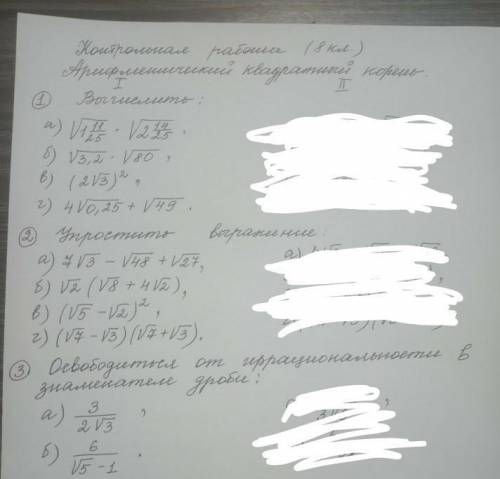 Контрольная работа (8 кл.)
Арифметический квадратный корень.
I II
① Вычислить:
а) √1 11/25 · √2 14/25,
б) √3,2 · √80,
в) (2√3)²,
г) 4√0,25 + √49.
② Упростить выражение:
а) 7√3 − √48 + √27,
б) √2 (√8 + 4√2),
в) (√5 − √2)²,
г) (√7 − √3)(√7 + √3).
③ Освободиться от иррациональности в
знаменателе дроби:
а) 3/(2√3),
б) 6/(√5 − 1).